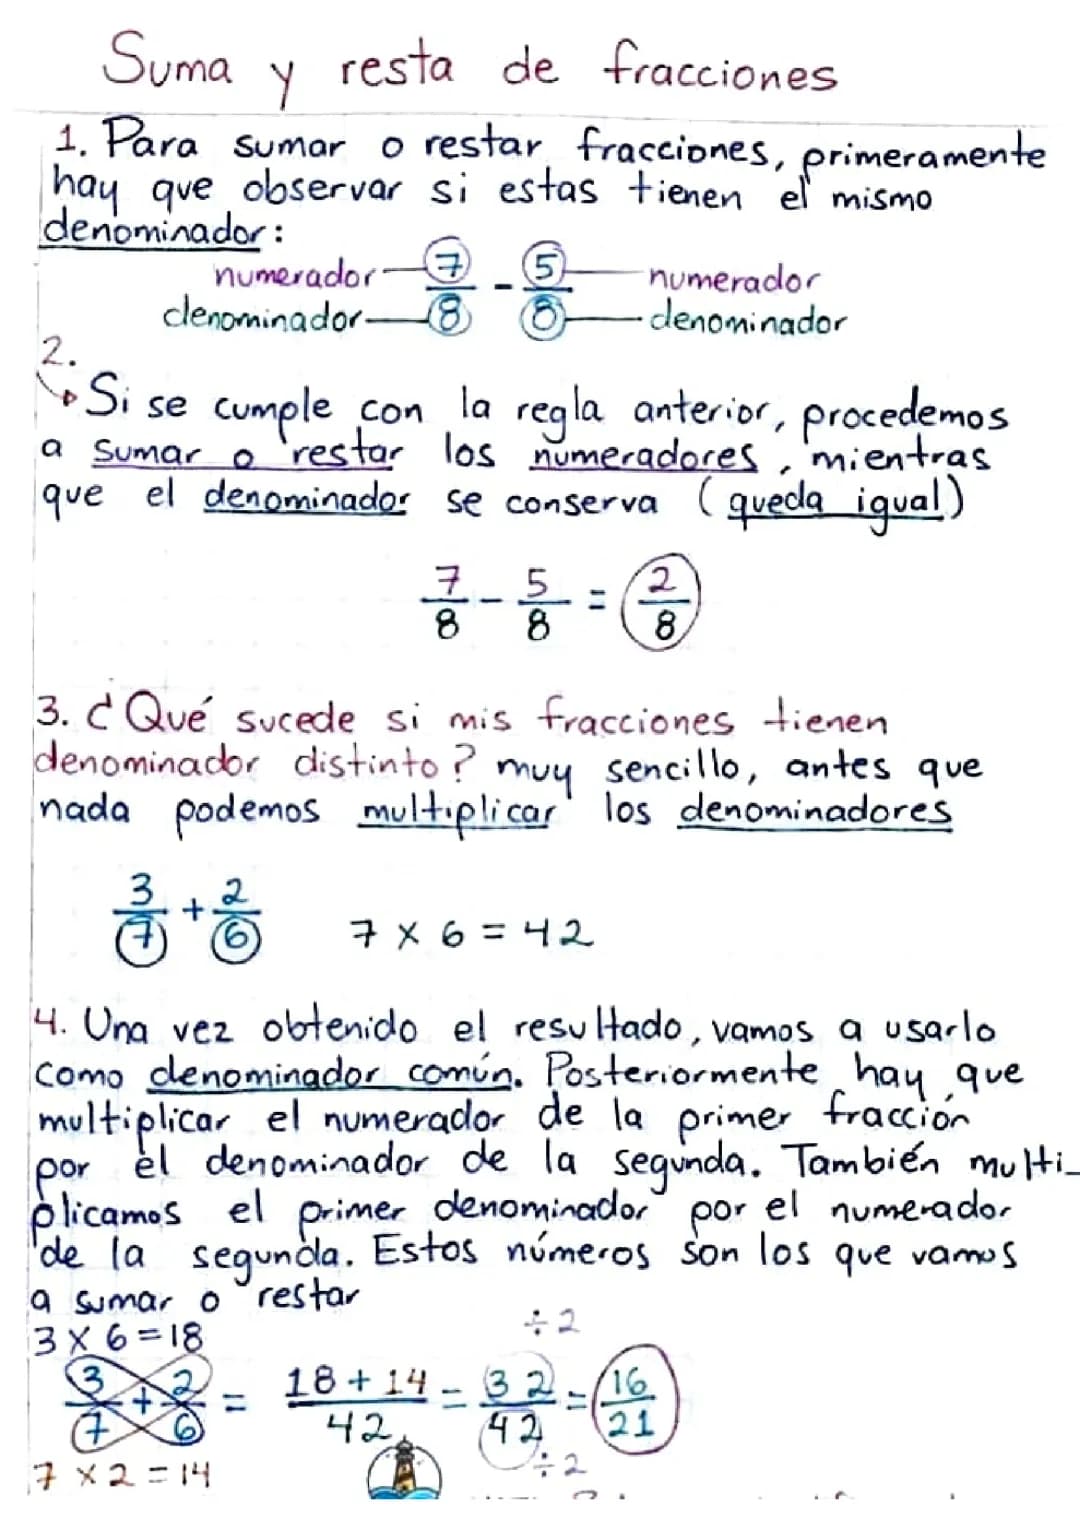 Suma y resta de fracciones
1. Para sumar o restar fracciones, primeramente
hay que observar si estas tienen el mismo
denominador:
numerador 7/8 - 5/8 numerador
denominador denominador
2.
Si se cumple con la regla anterior, procedemos
a sumar o restar los numeradores, mientras
que el denominador se conserva (queda igual)
7/8 - 5/8 = 2/8
3. ¿Qué sucede si mis fracciones tienen
denominador distinto? muy sencillo, antes que
nada podemos multiplicar los denominadores
3/7 + 2/6 7 x 6 = 42
4. Una vez obtenido el resultado, vamos a usarlo
como denominador común. Posteriormente hay que
multiplicar el numerador de la primer fracción
por el denominador de la segunda. También multi-
plicamos el primer denominador por el numerador
de la segunda. Estos números son los que vamos
a sumar o restar
3 x 6 = 18
÷2
3/7 + 2/6 = 18 + 14/42 = 32/42 = 16/21
÷2
7 x 2 = 14